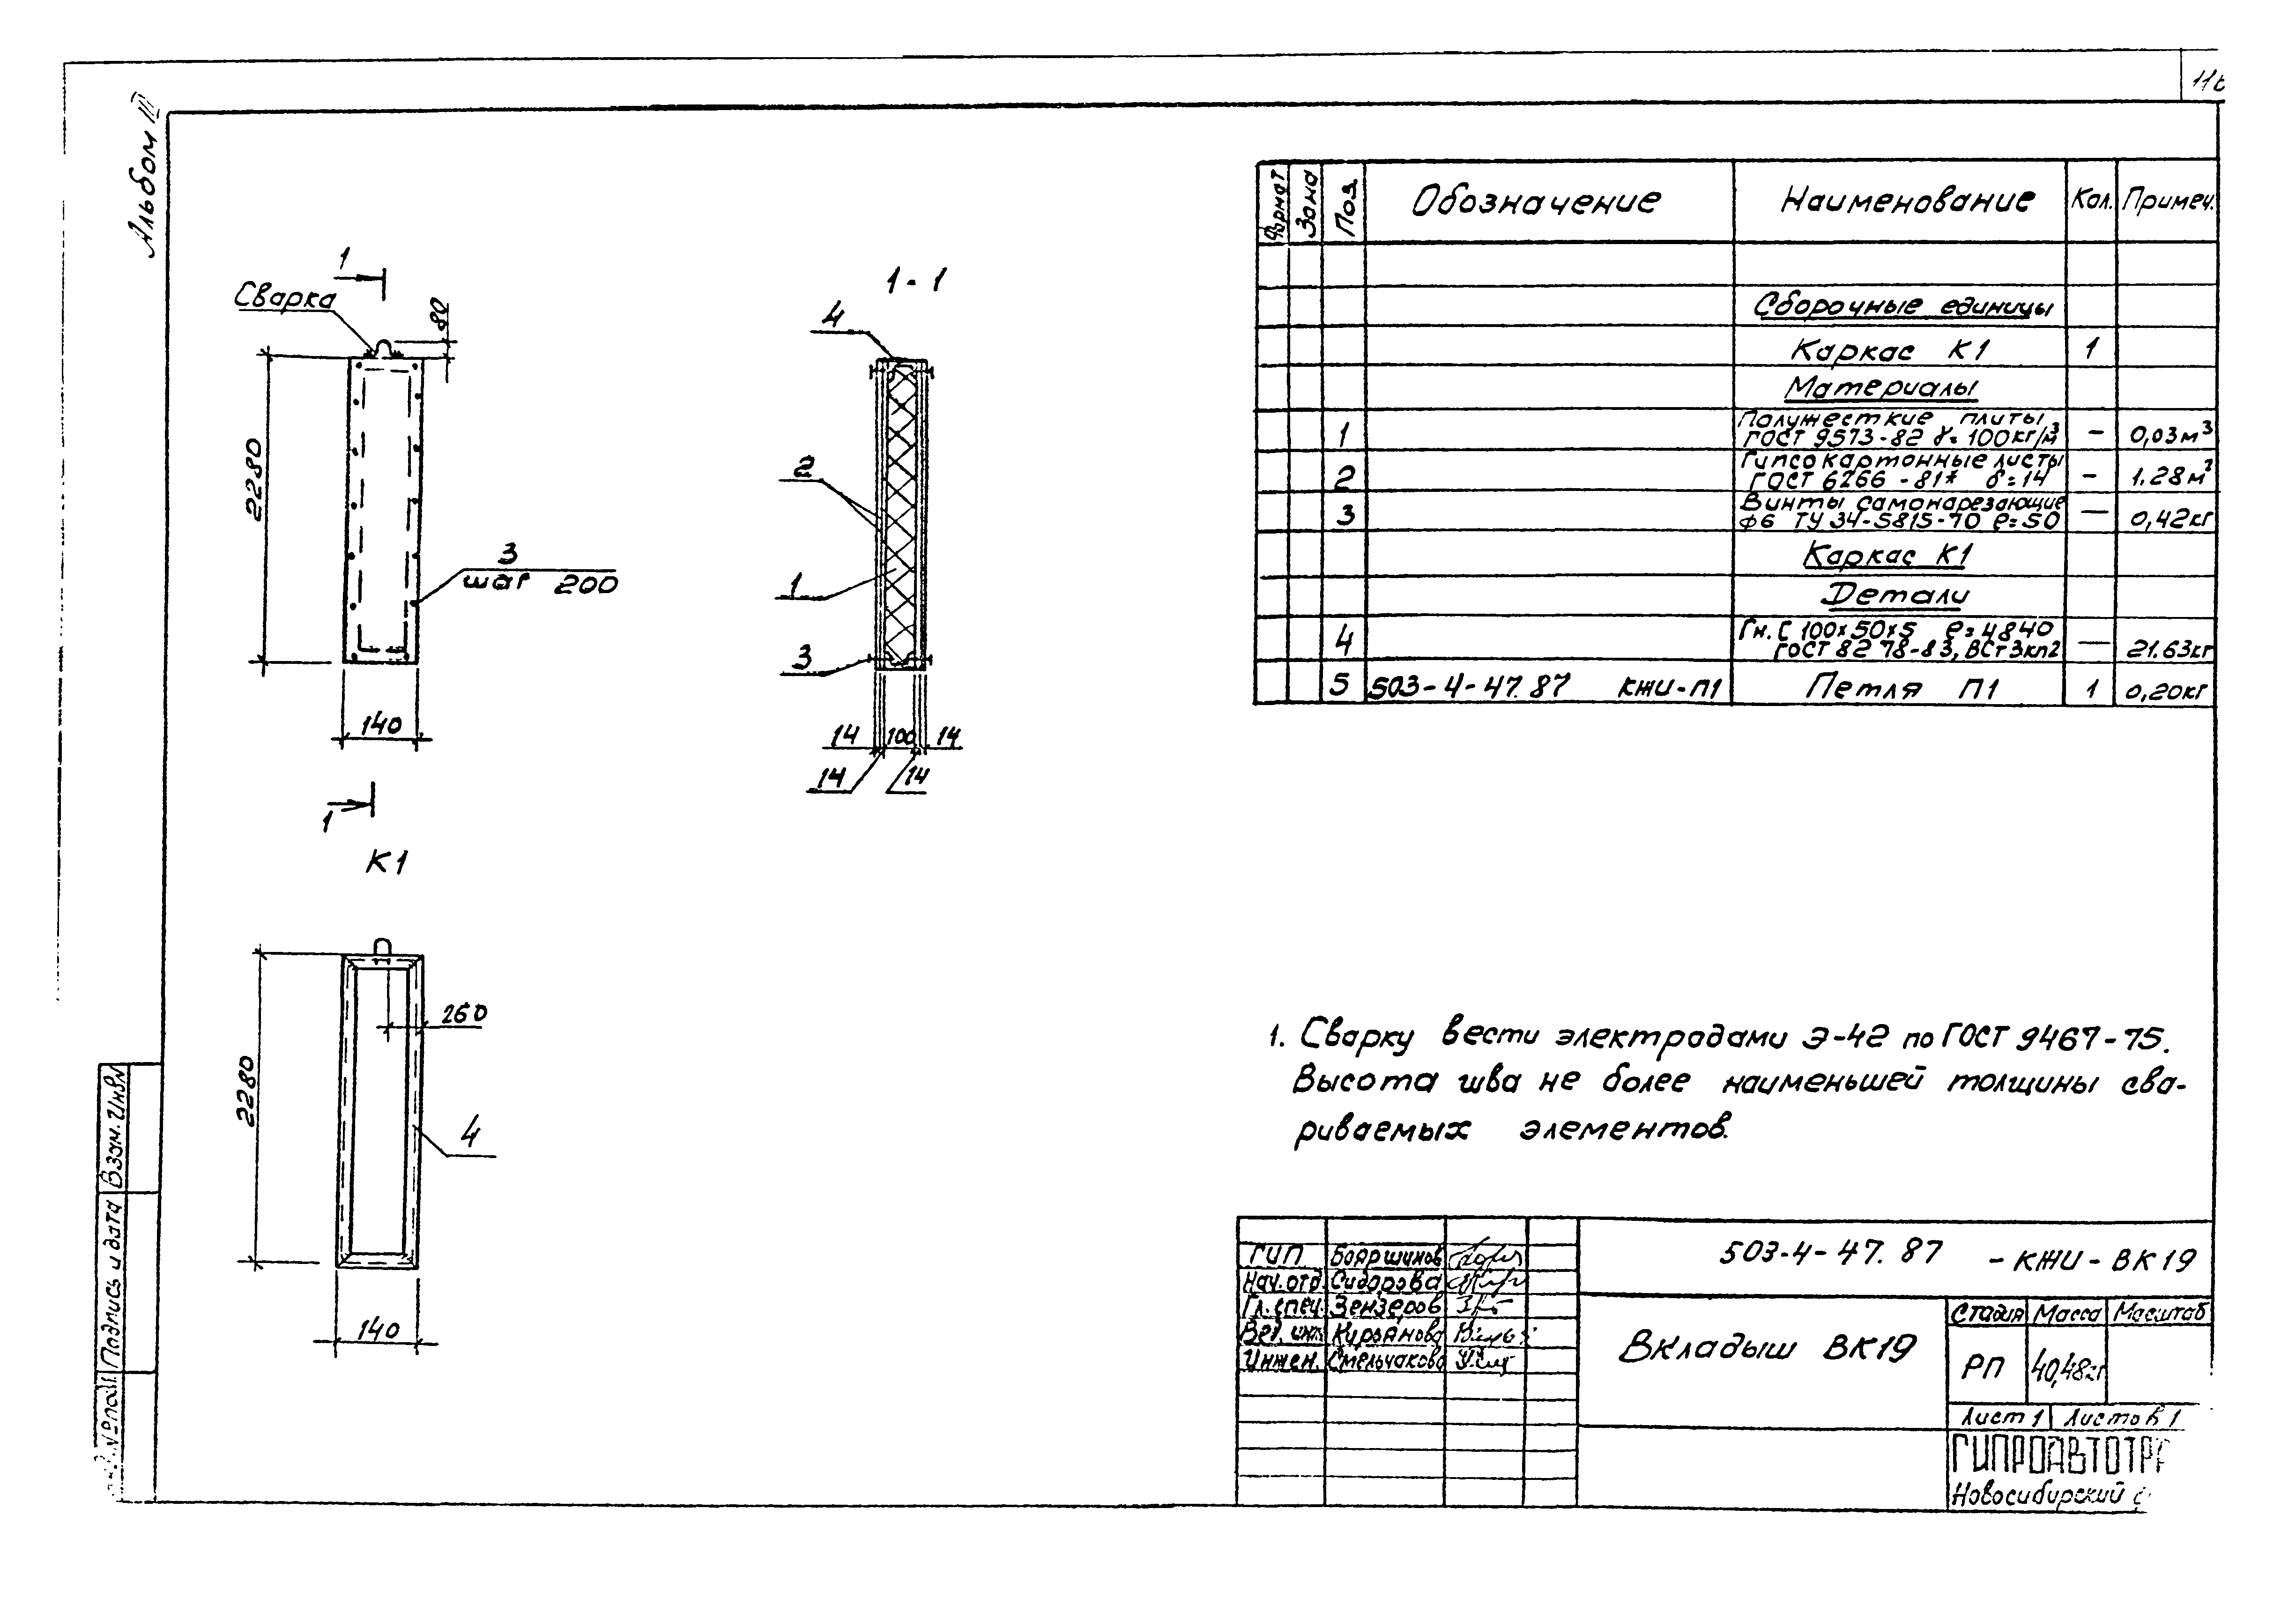 Альбом III
1
Сварка
80
2280
3
шаг 200
140
1
1-1
4
2
1
3
14 100 14
14 14
К1
260
2280
4
140
Формат Зона Поз. Обозначение Наименование Кол. Примеч.
Сборочные единицы
Каркас К1 1
Материалы
1 Полужесткие плиты ГОСТ 9573-82 γ=100кг/м³ – 0,03м³
2 Гипсокартонные листы ГОСТ 6266-81* δ=14 – 1.28м²
3 Винты самонарезающие ф6 ТУ 34-5815-70 ℓ=50 — 0,42кг
Каркас К1
Детали
4 Гн. С 100х50х5 ℓ=4840 ГОСТ 8278-83, ВСт3кп2 — 21.63кг
5 503-4-47.87 КЖИ-П1 Петля П1 1 0,20кг
1. Сварку вести электродами Э-42 по ГОСТ 9467-75.
Высота шва не более наименьшей толщины сва-
риваемых элементов.
Взам. Инв№
Подпись и дата
№ подл.
ГИП Бояршинов
Нач.отд. Сидорова
Гл.спец. Зензеров
Вед. инж. Кирьянова
Инжен. Смельчакова
503-4-47.87 -КЖИ-ВК19
Вкладыш ВК19
Стадия Масса Масштаб
РП 40,48кг
Лист 1 Листов 1
ГИПРОАВТОТР
Новосибирский